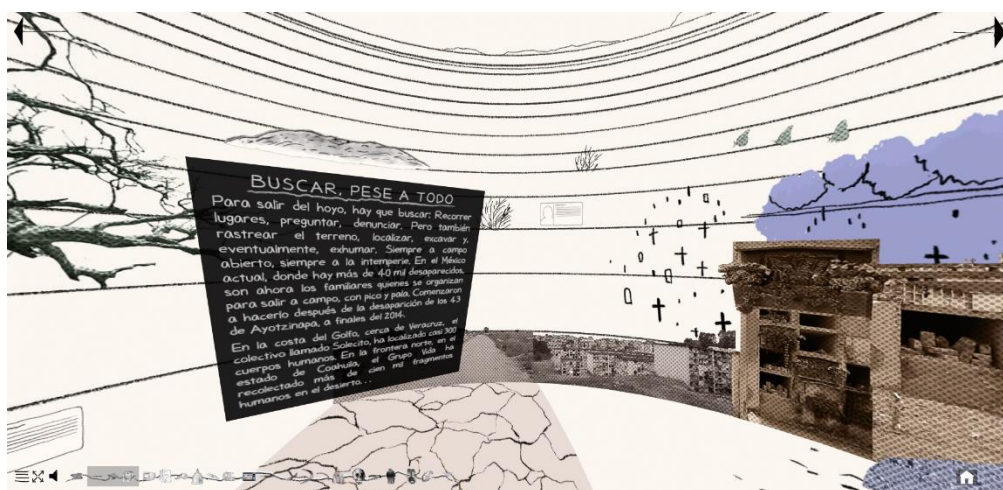 BUSCAR, PESE A TODO
Para salir del hoyo, hay que buscar: Recorrer
lugares, preguntar, denunciar. Pero también
rastrear el terreno, localizar, excavar y,
eventualmente, exhumar. Siempre a campo
abierto, siempre a la intemperie. En el México
actual, donde hay más de 40 mil desaparecidos,
son ahora los familiares quienes se organizan
para salir a campo, con pico y pala. Comenzaron
a hacerlo después de la desaparición de los 43
de Ayotzinapa, a finales del 2014.
En la costa del Golfo, cerca de Veracruz, el
colectivo llamado Solecito, ha localizado casi 300
cuerpos humanos. En la frontera norte, en el
estado de Coahuila, el Grupo Vida ha
recolectado más de cien mil fragmentos
humanos en el desierto...